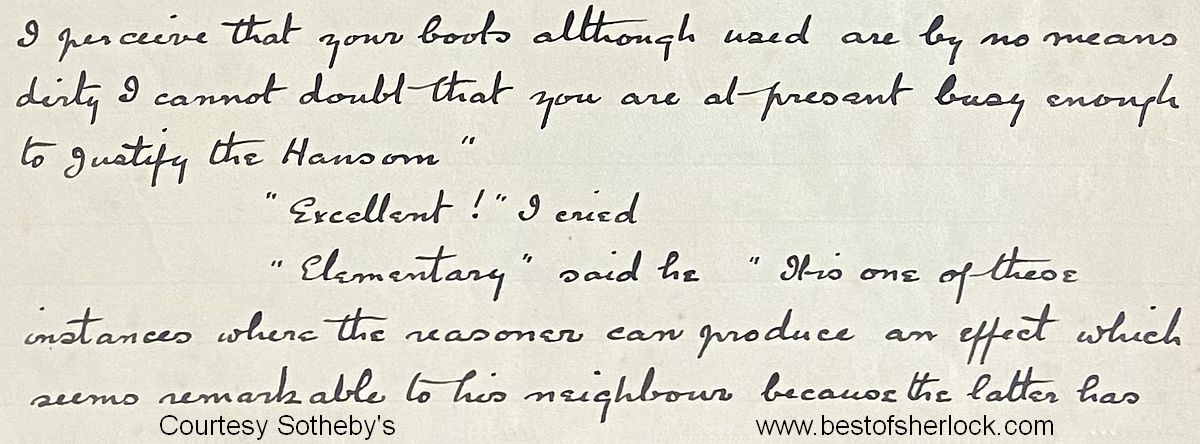 I perceive that your boots although used are by no means
dirty I cannot doubt that you are at present busy enough
to justify the Hansom"
"Excellent!" I cried
"Elementary" said he "It is one of those
instances where the reasoner can produce an effect which
seems remarkable to his neighbour because the latter has
Courtesy Sotheby's www.bestofsherlock.com